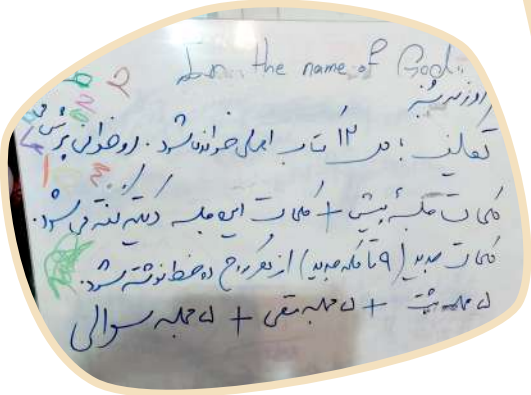 In the name of God
روز شنبه
تکلیف : ص ۱۲ کتاب اصلی خوانده شود. روخوانی پرسش
کلمات جلسهٔ پیش + کلمات این جلسه دیکته گفته می‌شود.
کلمات جدید (۹ تا کلمه جدید) از هر کدام ده خط نوشته شود.
۵ جمله مثبت + ۵ جمله منفی + ۵ جمله سوالی